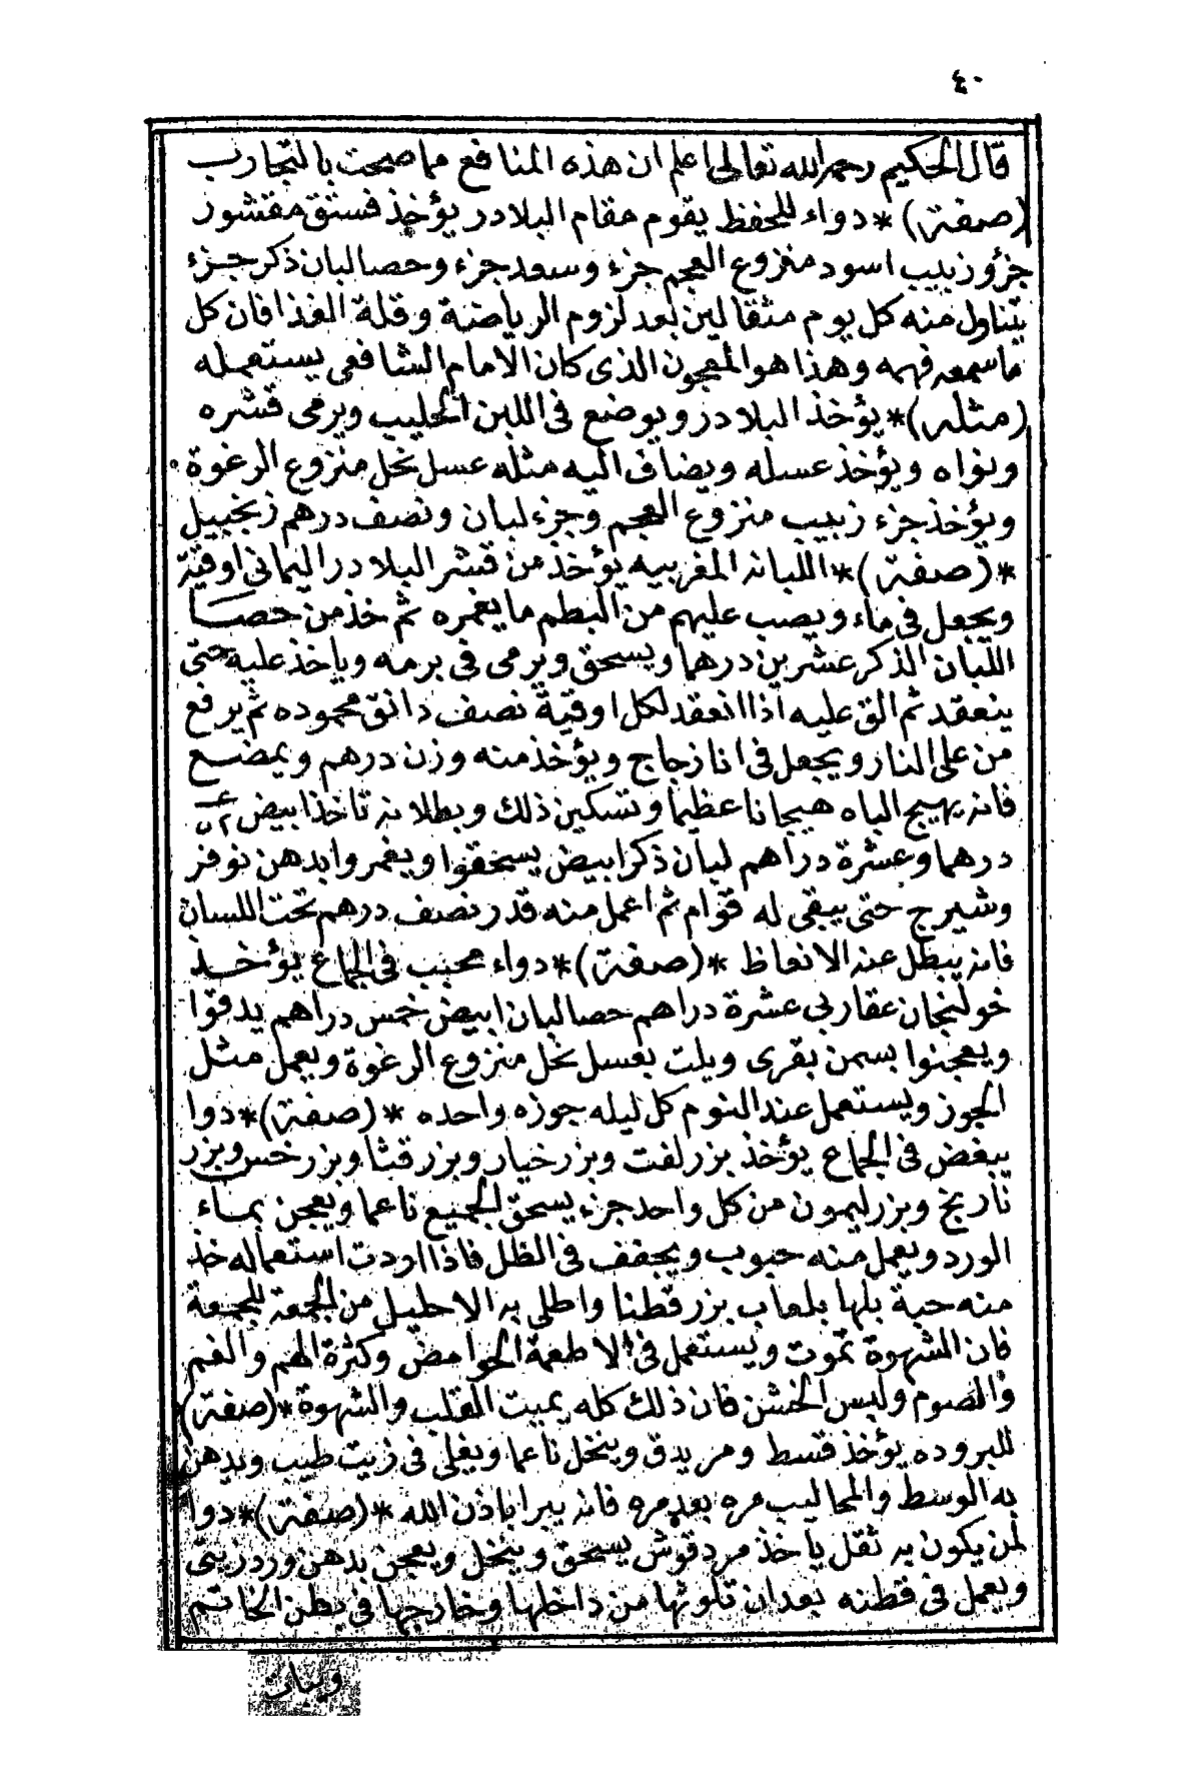 ٤٠
قال الحكيم رحمه الله تعالى اعلم ان هذه المنافع مما صحت بالتجارب
(صفته) * دواء للحفظ يقوم مقام البلادر يؤخذ فستق مقشور
جزؤ زبيب اسود منزوع العجم جزء وسعد جزء وحصالبان ذكر جزء
يتناول منه كل يوم مثقالين بعد لزوم الرياضة وقلة الغذا فان كل
ما سمعه فهمه وهذا هو المعجون الذى كان الامام الشافعى يستعمله
(مثله) * يؤخذ البلادر ويوضع فى اللبن الحليب ويرمى قشره
ونواه ويؤخذ عسله ويضاف اليه مثله عسل نحل منزوع الرغوة
ويؤخذ جزء زبيب منزوع العجم وجزء لبان ونصف درهم زنجبيل
* (صفة) * اللبانه المغربيه يؤخذ من قشر البلادر اليمانى اوقية
ويجعل فى ماء ويصب عليهم من البطم ما يغمره ثم خذ من حصا
اللبان الذكر عشرين درهما ويسحق ويرمى فى برمه وياخذ عليه حتى
ينعقد ثم الق عليه اذا انعقد لكل اوقية نصف دانق محموده ثم يرفع
من على النار ويجعل فى انا زجاج ويؤخذ منه وزن درهم ويمضع
فانه يهيج الباه هيجانا عظيما وتسكين ذلك وبطلانه تاخذ ابيض
درهما وعشرة دراهم لبان ذكر ابيض يسحقوا ويغمروا بدهن نوفر
وشيرج حتى يبقى له قوام ثم اعمل منه قدر نصف درهم تحت اللسان
فانه يبطل عنه الانعاظ * (صفة) * دواء محبب فى الجماع يؤخذ
خولنجان عقاربى عشرة دراهم حصالبان ابيض خمس دراهم يدقوا
ويعجنوا بسمن بقرى ويلت بعسل نحل منزوع الرغوة ويعمل مثل
الجوز ويستعمل عند النوم كل ليله جوزه واحده * (صفة) * دوا
يبغض فى الجماع يؤخذ بزر لفت وبزر خيار وبزر قثا وبزر خس وبزر
نارنج وبزر ليمون من كل واحد جزء يسحق الجميع ناعما ويعجن بماء
الورد ويعمل منه حبوب ويجفف فى الظل فاذا اردت استعماله خذ
منه حبة بلها بلعاب بزر قطنا واطلى به الاحليل من الجمعة للجمعة
فان الشهوة تموت ويستعمل فى الاطعمة الحوامض وكثرة الهم والغم
والصوم ولبس الخشن فان ذلك كله يميت القلب والشهوة * (صفة)
للبروده يؤخذ قسط ومر يدق وينخل ناعما ويغلى فى زيت طيب ويدهن
به الوسط والمحاليب مره بعد مره فانه يبرا باذن الله * (صفة) * دوا
لمن يكون به ثقل ياخذ مردقوش يسحق وينخل ويعجن بدهن ورد زيتى
ويعمل فى قطنه بعد ان تلوثها من داخلها وخارجها فى بطن الخاتم
وبنات